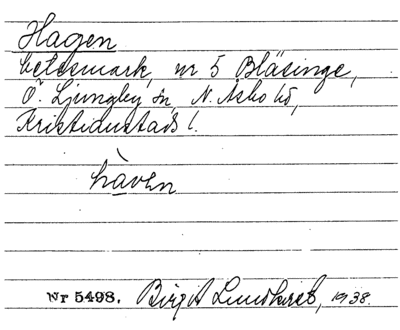 Hagen
betesmark, nr 5 Bläsinge,
Ö. Ljungby sn, N. Åsbo hd,
Kristianstads l.
hàven
Nr 5498. Birgit Lundkvist, 1938.